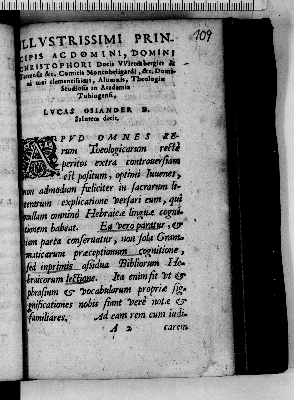 109
ILLVSTRISSIMI PRIN-
CIPIS AC DOMINI, DOMINI
CHRISTOPHORI Ducis VVirtembergici &
Teccensis &c. Comitis Montbeligardi, &c. Domi-
ni mei clementissimi, Alumnis, Theologiæ
Studiosis in Academia
Tubingensi,
LVCAS OSIANDER D.
Salutem dicit.
APVD OMNES RE-
rum Theologicarum rectè
peritos extra controuersiam
est positum, optimi Iuuenes,
non admodum fœliciter in sacrarum li-
terarum explicatione versari eum, qui
nullam omninò Hebraicæ linguæ cogni-
tionem habeat. Ea verò paratur, &
iam parta conseruatur, non sola Gram-
maticarum præceptionum cognitione,
sed inprimis assidua Bibliorum He-
braicorum lectione. Ita enim fit vt &
phrasium & vocabulorum propriæ sig-
nificationes nobis fiant verè notæ &
familiares. Ad eam rem cum iudi-
A 2 carem